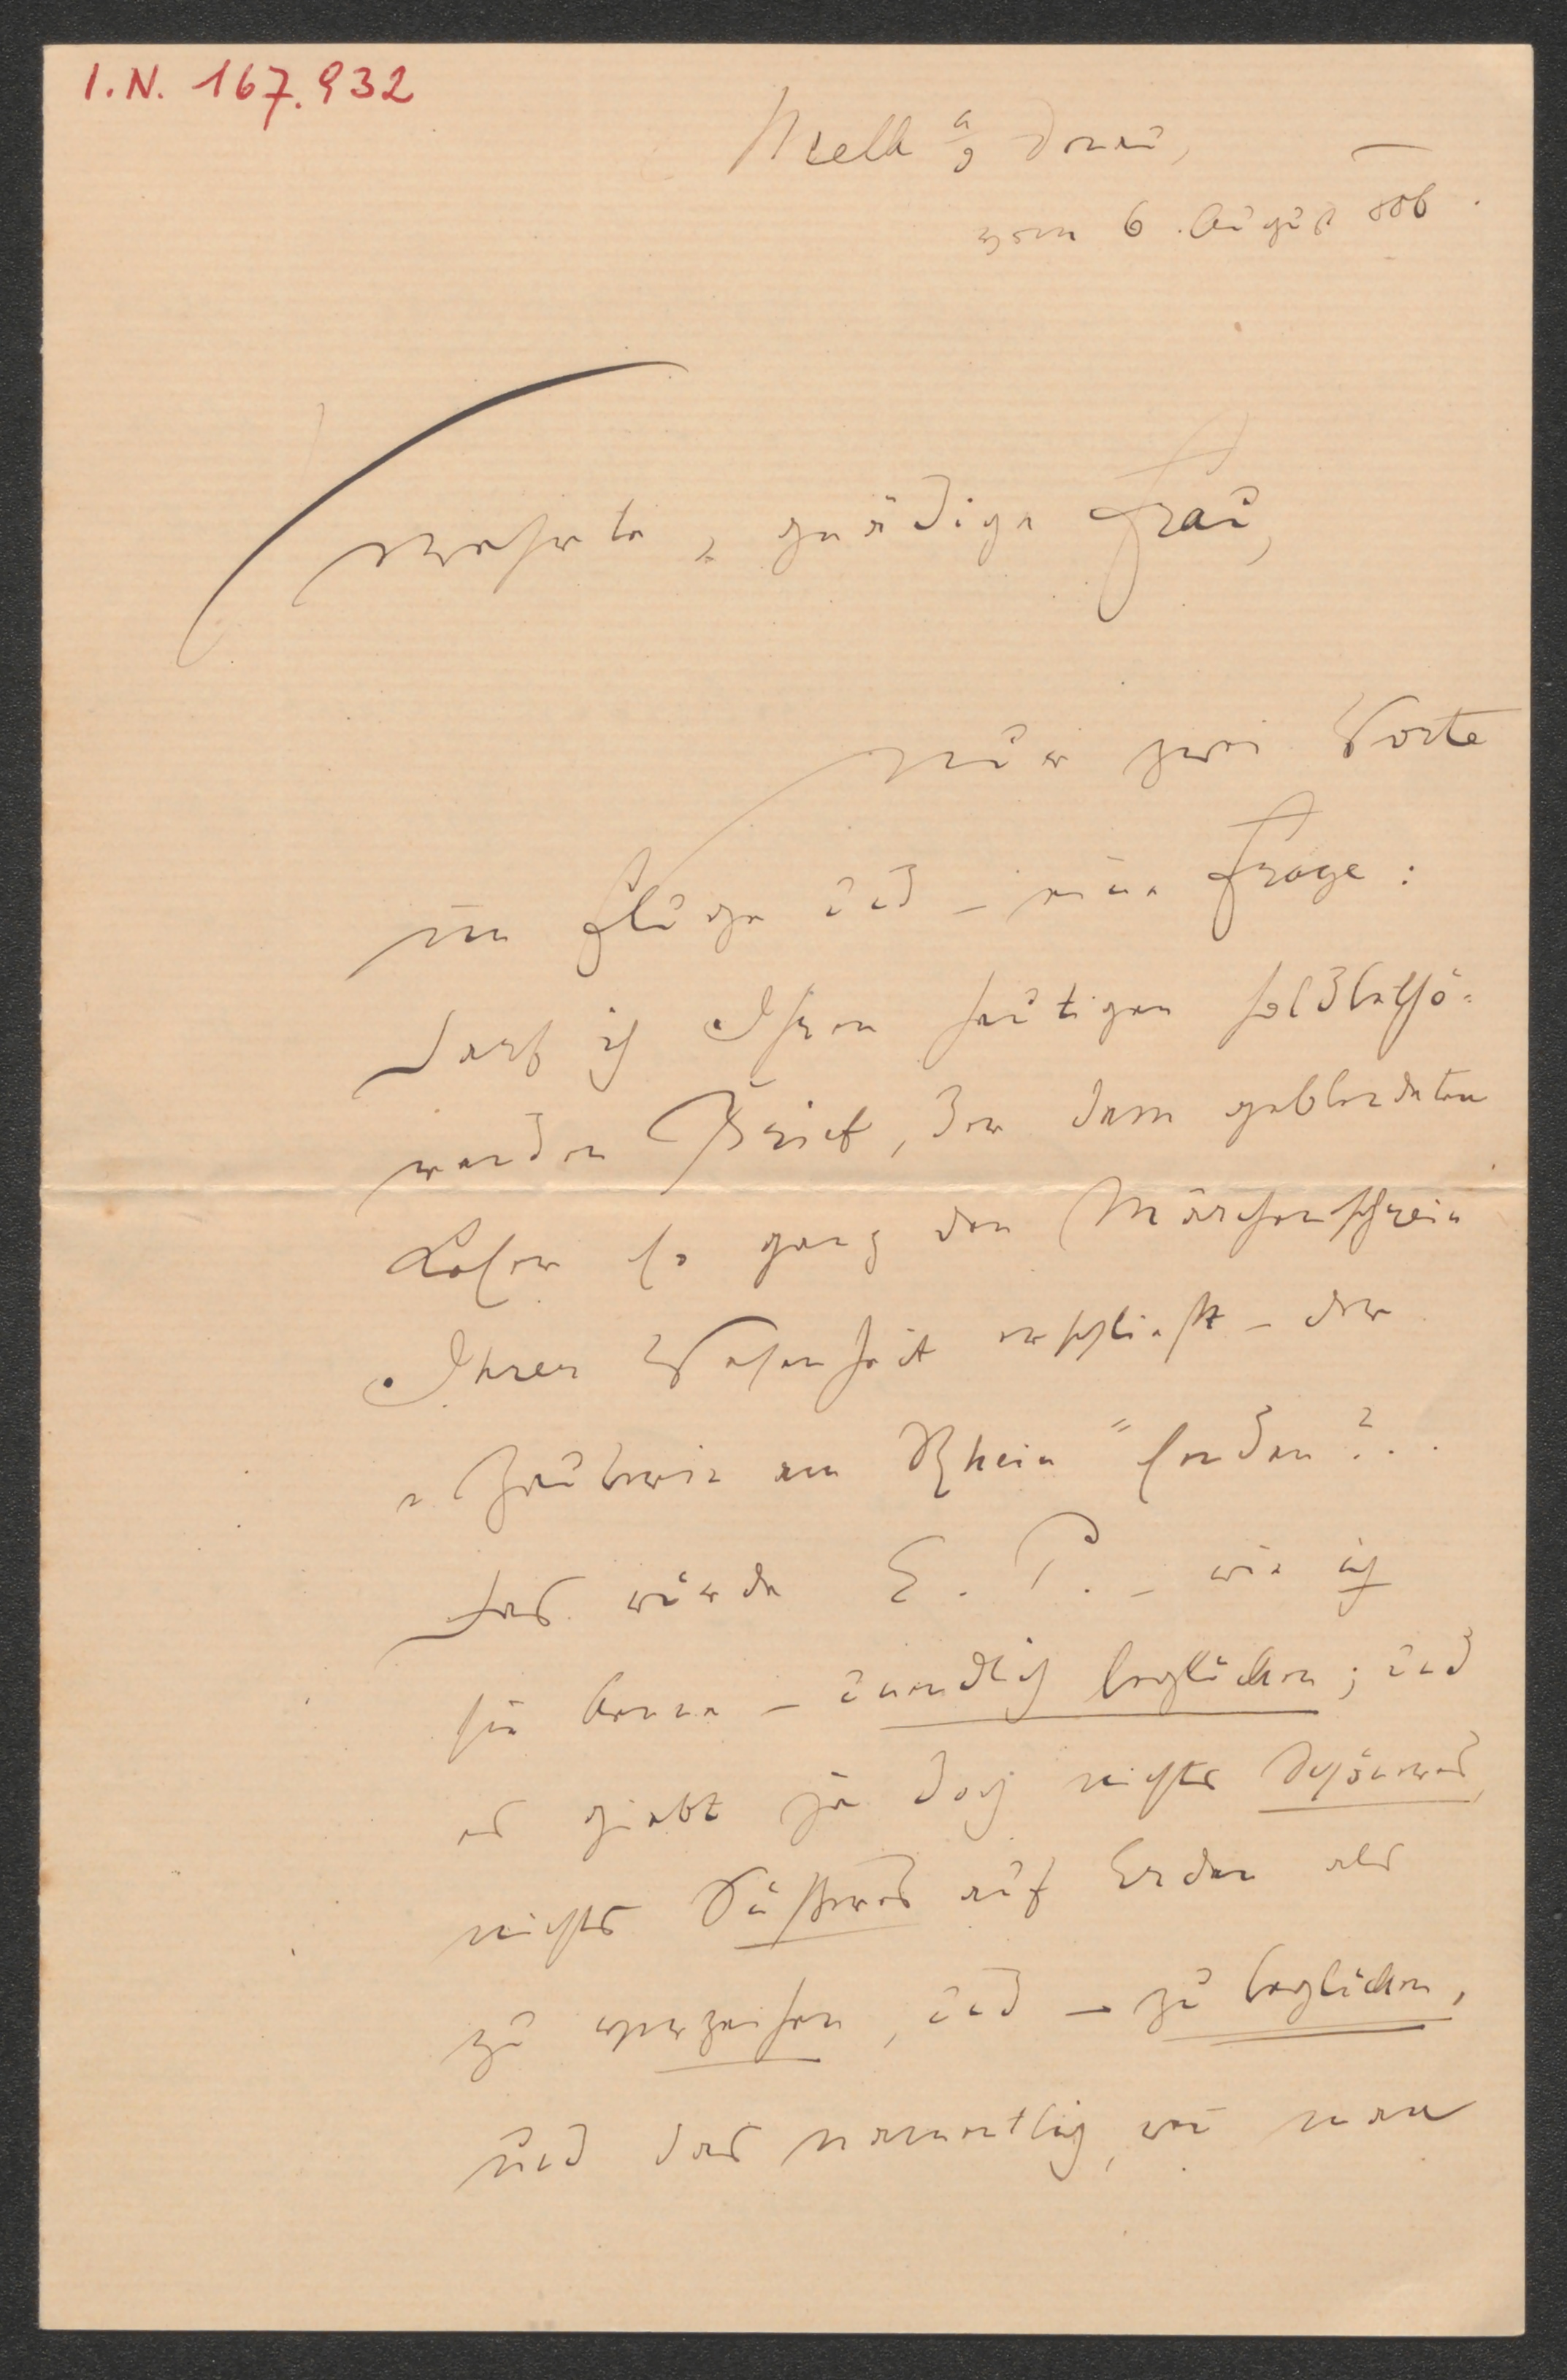 I.N. 167.932
Melk a/d Donau,
vom 6. August 886.
Verehrte, gnädige Frau,
nur zwei Worte
im Fluge und – eine Frage:
Darf ich Ihren heutigen
Brief, der dem geblendeten
Leser so ganz den Märchenschrein
Ihrer Wesenheit erschließt – der
"Zauberin am Rhein" senden?..
Das würde E. P. – wie ich
sie kenne – unendlich beglücken; und
es giebt ja doch nichts Schöneres,
nichts Süßeres auf Erden als
zu verzeihen, und – zu beglücken,
und das namentlich, wo man